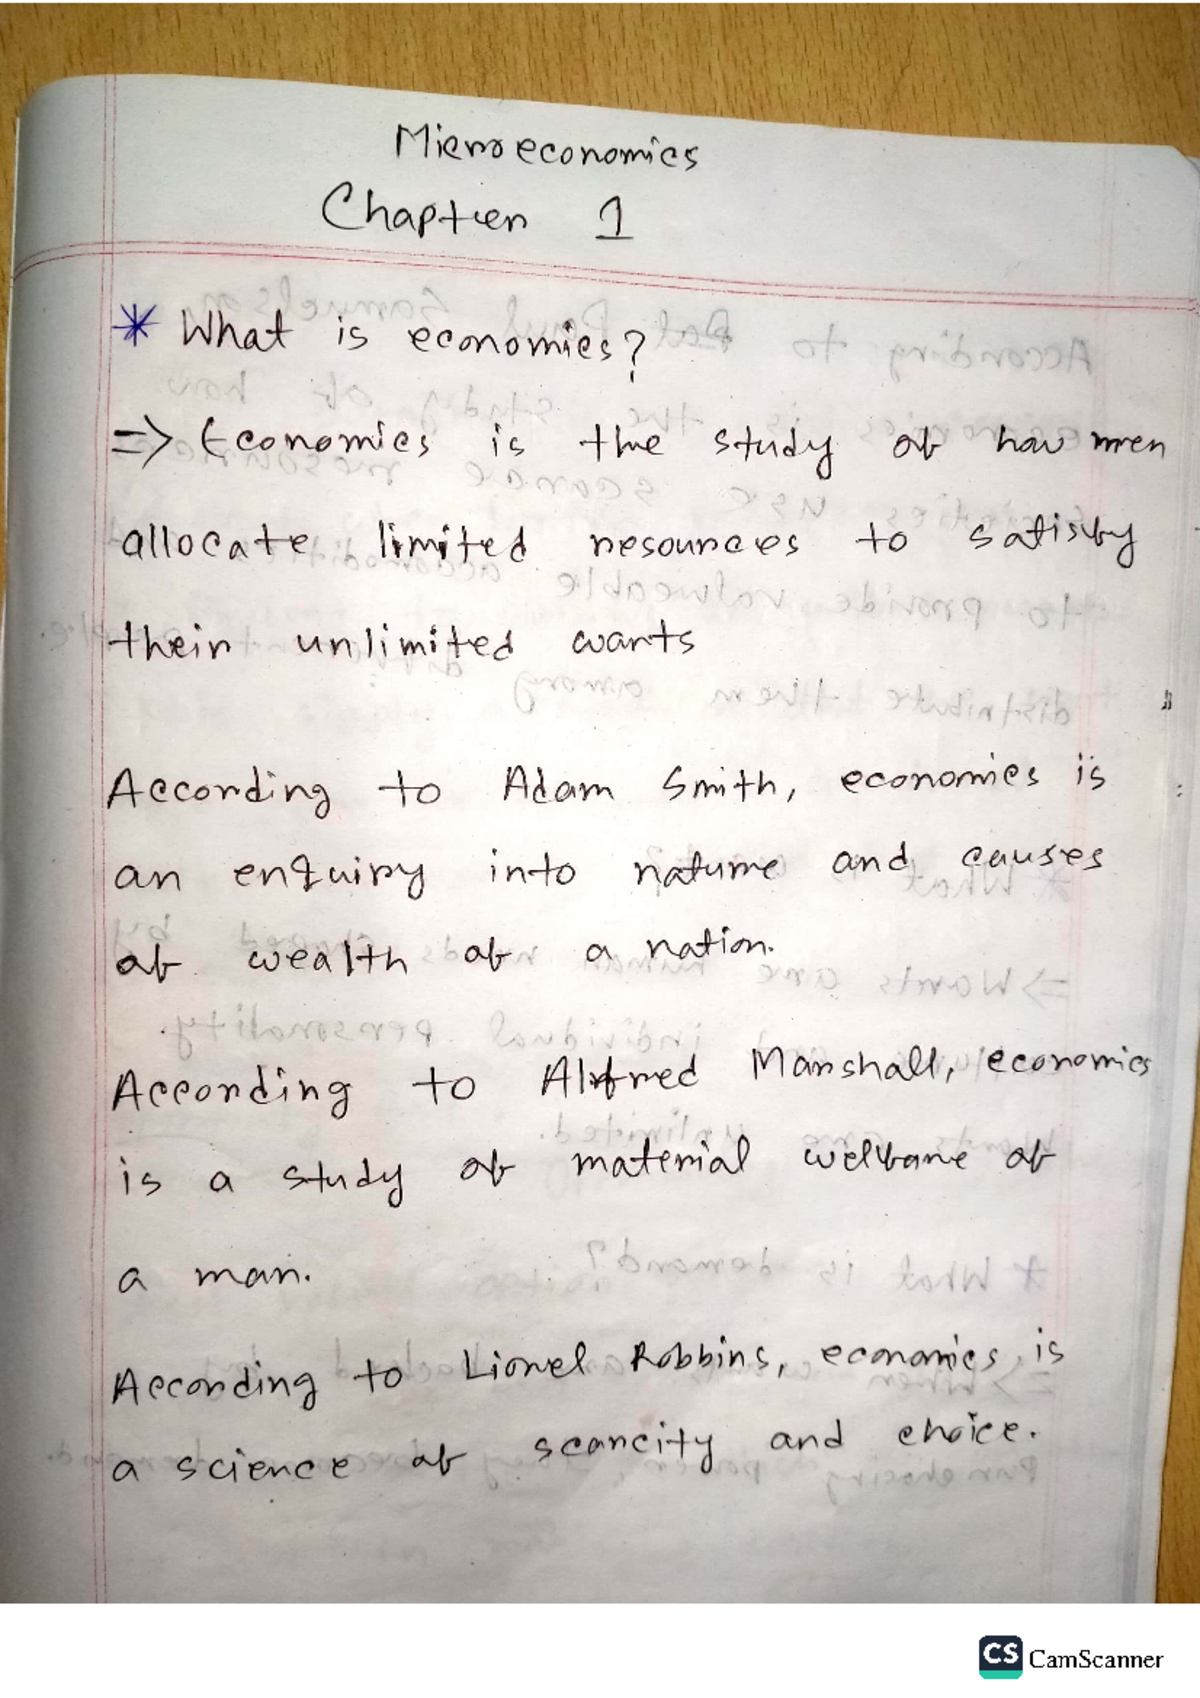 Microeconomics
Chapter 1
* What is economics?
=> Economics is the study of how men
allocate limited resources to satisfy
their unlimited wants
According to Adam Smith, economics is
an enquiry into nature and causes
of wealth of a nation.
According to Alfred Marshall, economics
is a study of material welfare of
a man.
According to Lionel Robbins, economics is
a science of scarcity and choice.
CS CamScanner